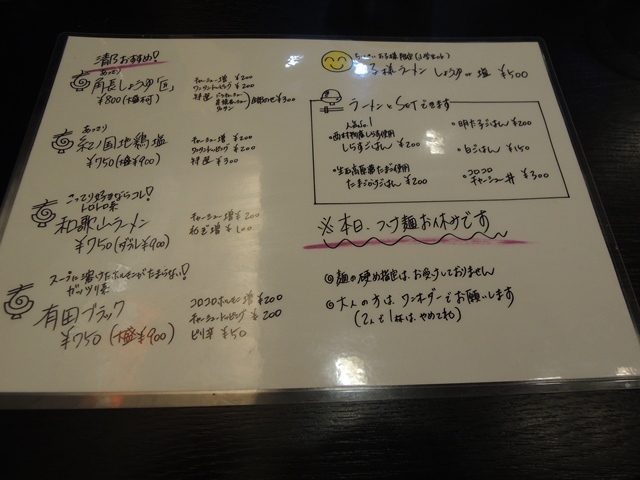 清乃おすすめ!
あっさり
角長しょうゆ「匠」
¥800(大盛
チャーシュー増 ¥200
ワンタントッピング ¥200
特選
¥300
あっさり
紀ノ国地鶏塩
¥750(大盛¥900)
チャーシュー増 ¥200
ワンタントッピング ¥200
特選 ¥300
こってり好きならコレ!
トロトロ系
和歌山ラーメン
¥750(ダブル¥900)
チャーシュー増 ¥200
ねぎ増 ¥100
スープに溶けたホルモンがたまらない!
ガッツリ系
有田ブラック
¥750(大盛¥900)
コロコロホルモン増 ¥200
チャーシュートッピング ¥200
ピリ辛 ¥50
お子様限定(小学生まで)
お子様ラーメン しょうゆor塩 ¥500
ラーメンとSETできます
人気No.1
・西村物産しらす使用
しらすごはん ¥200
たまご使用
たまごかけごはん ¥200
・明太子ごはん ¥200
・白ごはん ¥150
・コロコロ
チャーシュー丼 ¥300
※本日、つけ麺お休みです
◎麺の硬め指定は、お受けしておりません
◎大人の方は、ワンオーダーでお願いします
(2人で1杯は、やめてね)